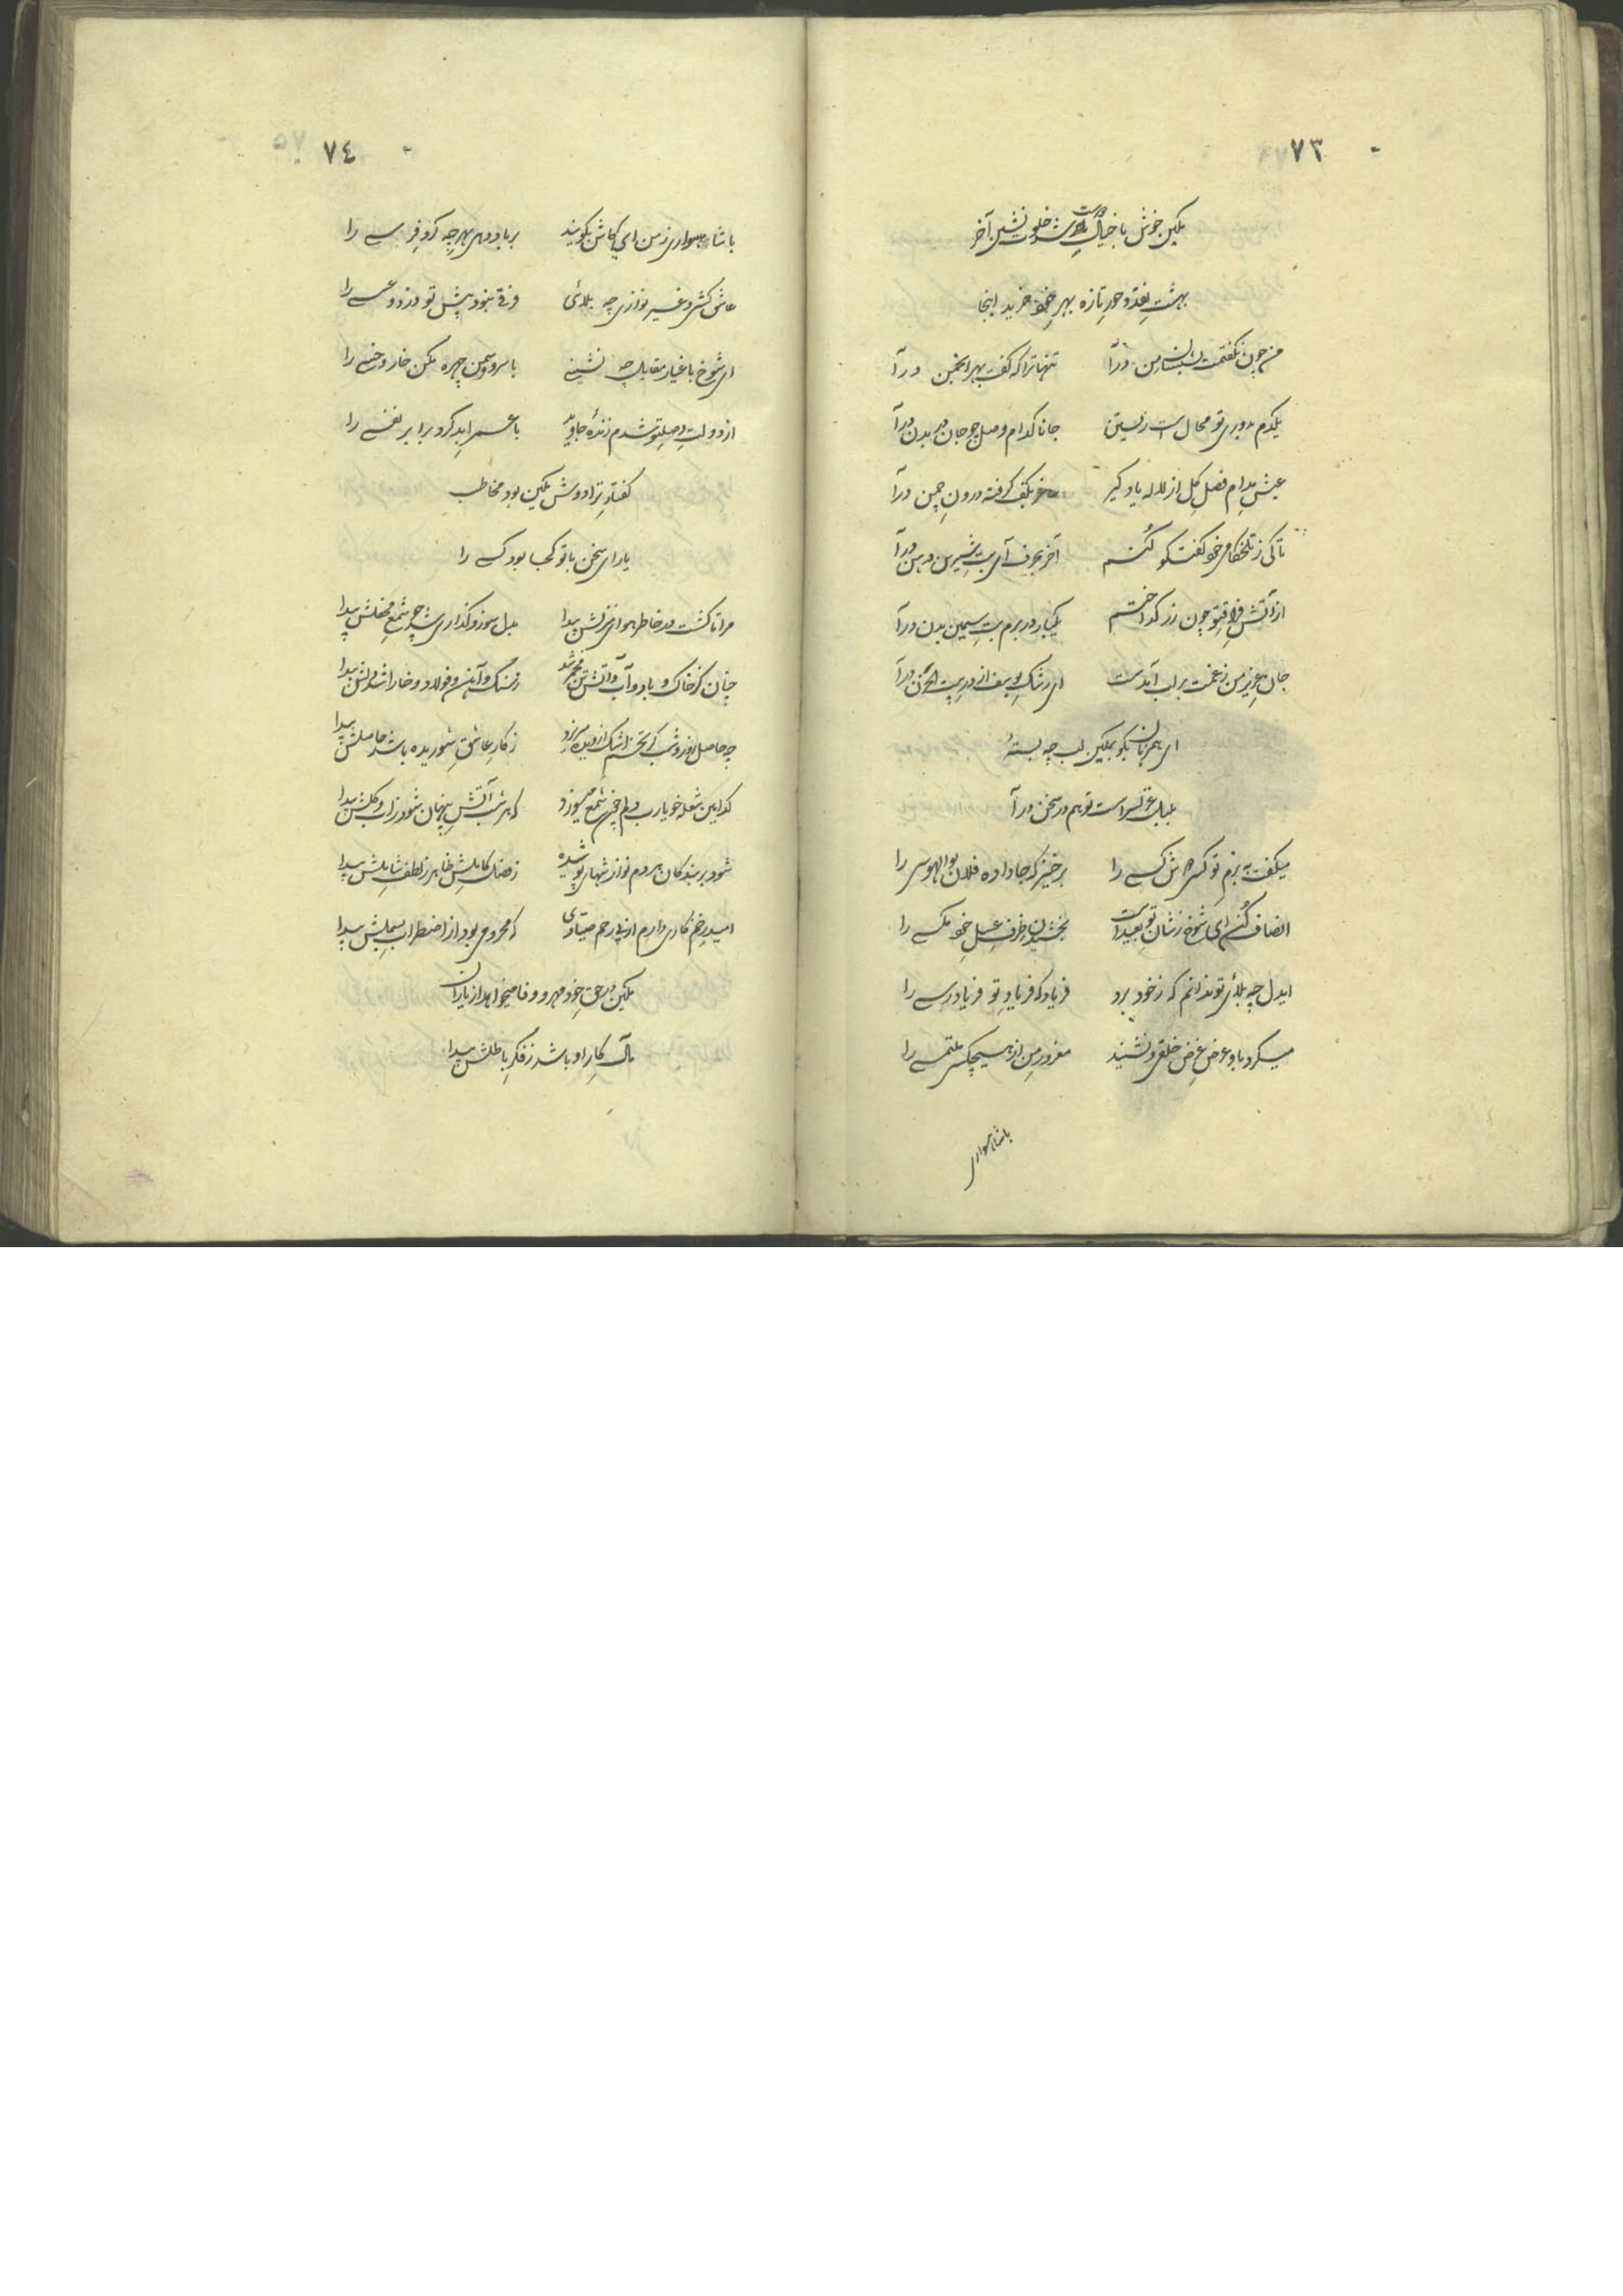 ٧٣
تمکین خوش با خیال دوست شد خلوت نشین آخر
بهشت نقد و حور تازه بهر خود خرید اینجا
من چون نگفتمت بشبستان من درآ تنها ترا که گفت بهر انجمن درآ
یکدم بدوری تو محال است زیستن جانا کدام وصل چو جان در بدن درآ
عیش مدام فصل گل از لاله یاد گیر ساغر بکف گرفته درون چمن درآ
تا کی ز تلخکامی خود گفتگو کنم آخر بحرف آی بت شیرین دهن درآ
از آتش فراق تو چون زر گداختم یکبار در برم بت سیمین بدن درآ
جان عزیز من ز غمت بر لب آمدست ای رشک یوسف از در بیت الحزن درآ
ای همزبان بگو تمکین لب چه بستهٔ
بلبل غزلسراست تو هم در سخن درآ
میگفت به بزم تو کسی کسے را برخیز که جا داده فلان بوالهوسی را
انصاف کن ای شوخ ز شان تو بعیدست بخشیدن ظرف عسل خود مگسے را
ایدل چه بلائی تو ندانم که ز خود برد فریاد که فریاد تو فریادرسے را
میکرد باو عرض غرض خلق و نشنید مغرور من از هیچکسی ملتمسے را
با شاهسواری
٧٤
با شاهسواری ز من ای کاش بگویند بر باد دهی بهر چه گرد فرسے را
عاشق کشی و غیر نوازی چه بلائی فرقے نبود پیش تو دزد و عسسے را
ای شوخ باغیار مقابل چه نشینے با سرو و سمن چهره مکن خار و خسے را
از دولت وصل تو شدم زندهٔ جاوید با عمر ابد کرد برابر نفسے را
گفتار ترا دوش تمکین بود مخاطب
یارای سخن با تو کجا بود کسے را
مرا تا گشت در خاطر هوای منزلش پیدا بدل سوز و گدازی شد چو شمع محفلش پیدا
چنان کز خاک و باد و آب و آتش تن مخمر شد ز سنگ و آهن و فولاد و خارا شد دلش پیدا
چه حاصل روز و شب گر تخم اشک از دیده میریزد ز کار عاشق شوریده باشد حاصلش پیدا
کدامین شعله خو یارب دلم چون شمع میسوزد که هر شب آتش پنهان شود ز آب و گلش پیدا
شود بر بندگان هر دم نوازشهای پوشیده ز فضل کاملش ظاهر ز لطف شاملش پیدا
امید زخم کاری دارم از بی رحم صیادی که محرومی بود از اضطراب بسملش پیدا
تمکین در حق خود مهر و وفا میخواهد از یاران
مآل کار او باشد ز فکر باطلش پیدا